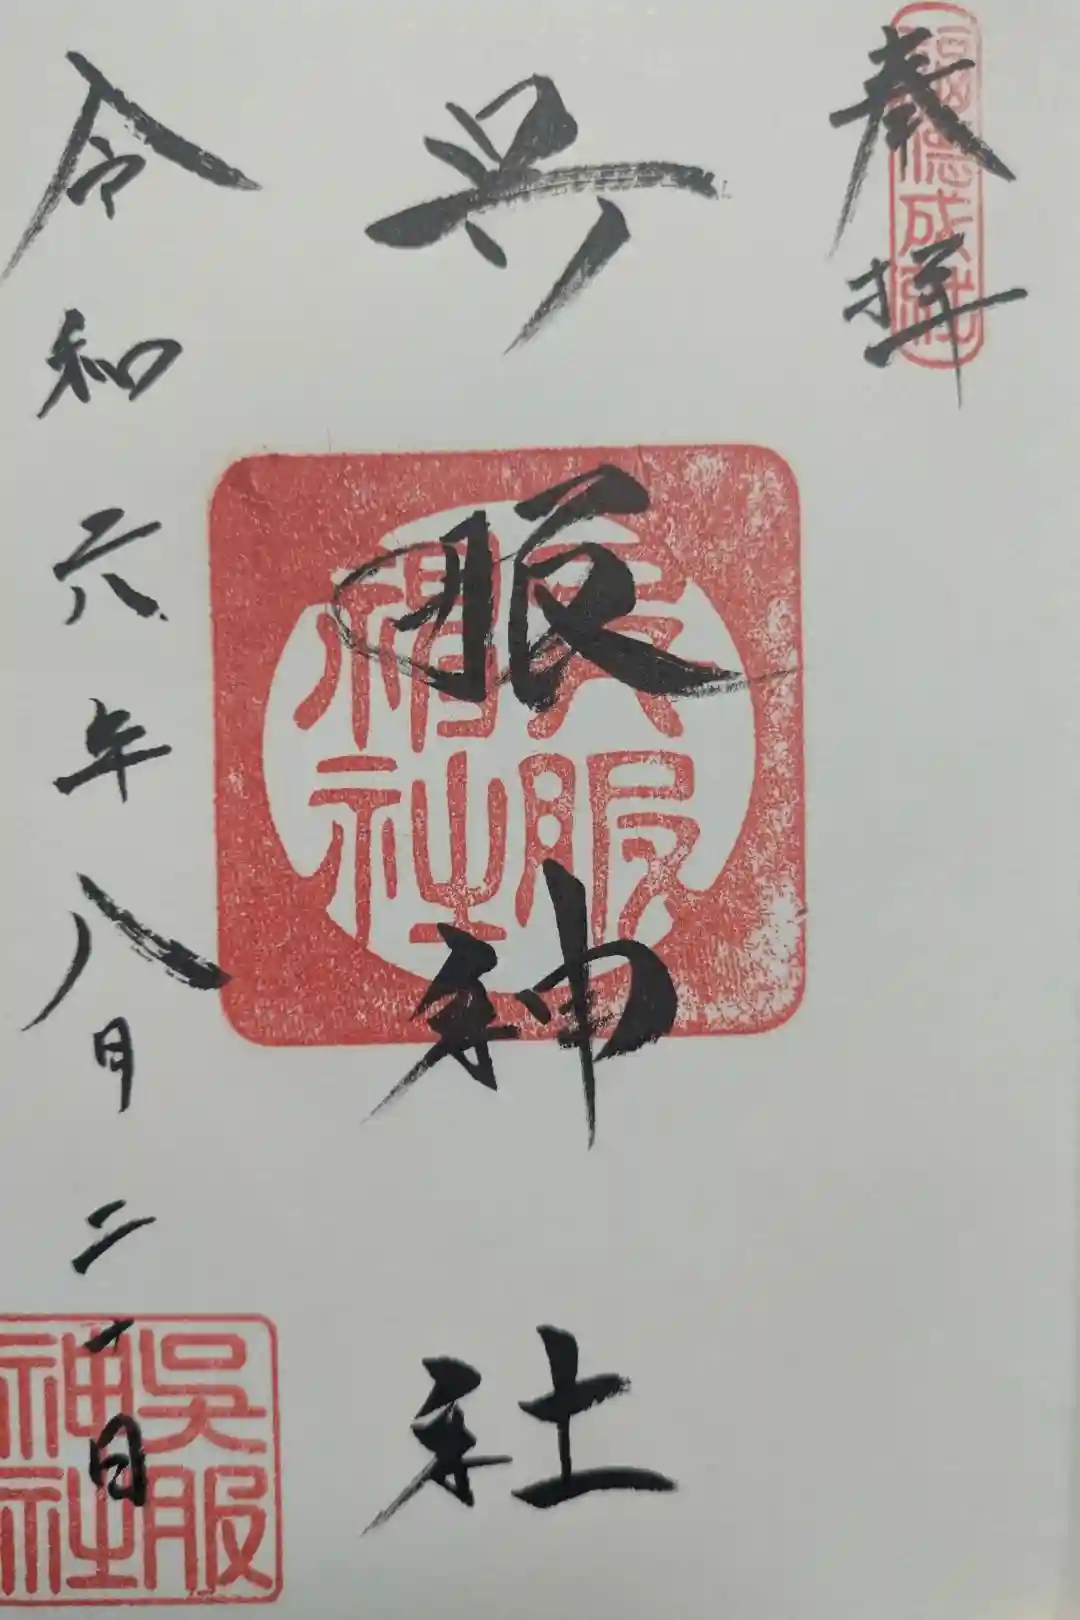 奉拝
福徳成就
呉服神社
呉服神社
令和六年八月二十日
呉服神社